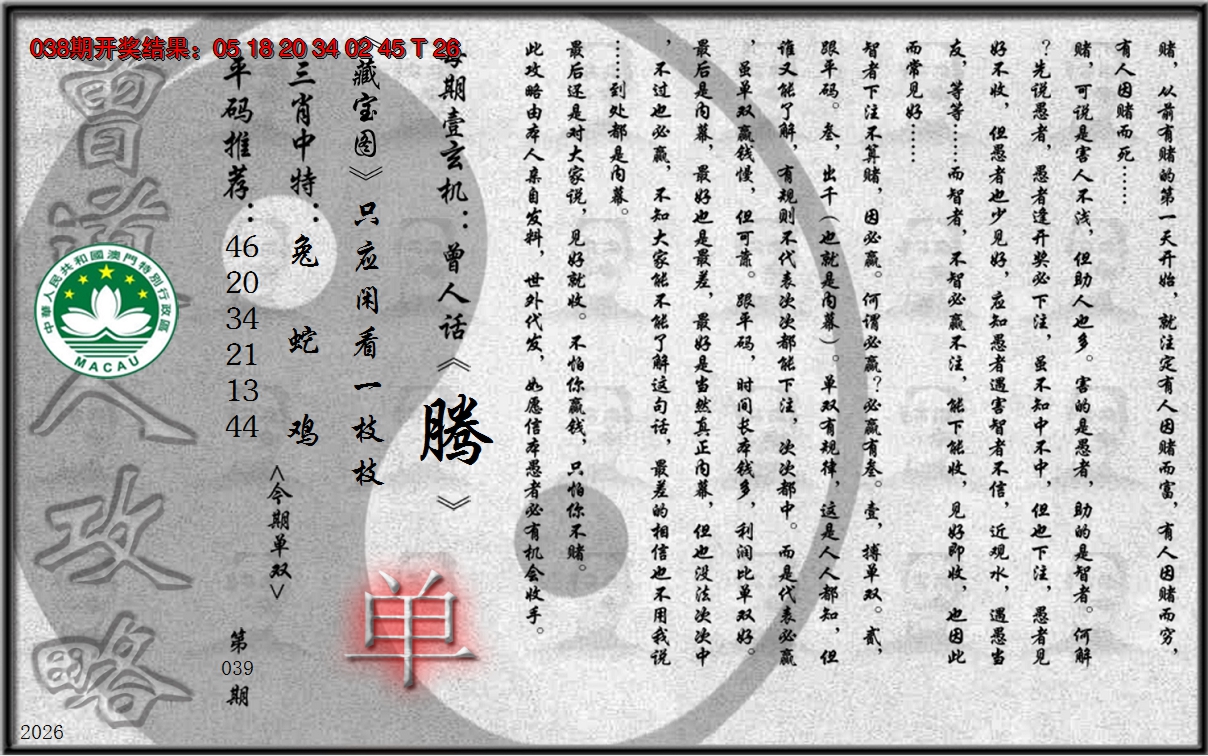 038期开奖结果：05 18 20 34 02 45 T 26
赌，从前有赌的第一天开始，就注定有人因赌而富，有人因赌而穷，
有人因赌而死……
赌，可说是害人不浅，但助人也多。害的是愚者，助的是智者。何解
？先说愚者，愚者逢开奖必下注，虽不知中不中，但也下注，愚者见
好不收，但愚者也少见好，应知愚者遇害智者不信，近观水，遇愚当
友，等等……而智者，不智必赢不注，能下能收，见好即收，也因此
而常见好……
智者下注不算赌，因必赢。何谓必赢？必赢有叁。壹，搏单双。贰，
跟平码。叁，出千（也就是内幕）。单双有规律，这是人人都知，但
谁又能了解，有规则不代表次次都能下注，次次都中。而是代表必赢
，虽单双赢钱慢，但可靠。跟平码，时间长本钱多，利润比单双好。
最后是内幕，最好也是最差，最好是当然真正内幕，但也没法次次中
，不过也必赢，不知大家能不能了解这句话，最差的相信也不用我说
……到处都是内幕。
最后还是对大家说，见好就收。不怕你赢钱，只怕你不赌。
此攻略由本人亲自发料，世外代发，如愿信本愚者必有机会收手。
每期壹玄机：曾人话《腾》
《藏宝图》只应闲看一枝枝
单
三肖中特：兔 蛇 鸡
<今期单双>
平码推荐：
46
20
34
21
13
44
第
039
期
曾道人攻略
中華人民共和國澳門特別行政區
MACAU
2026